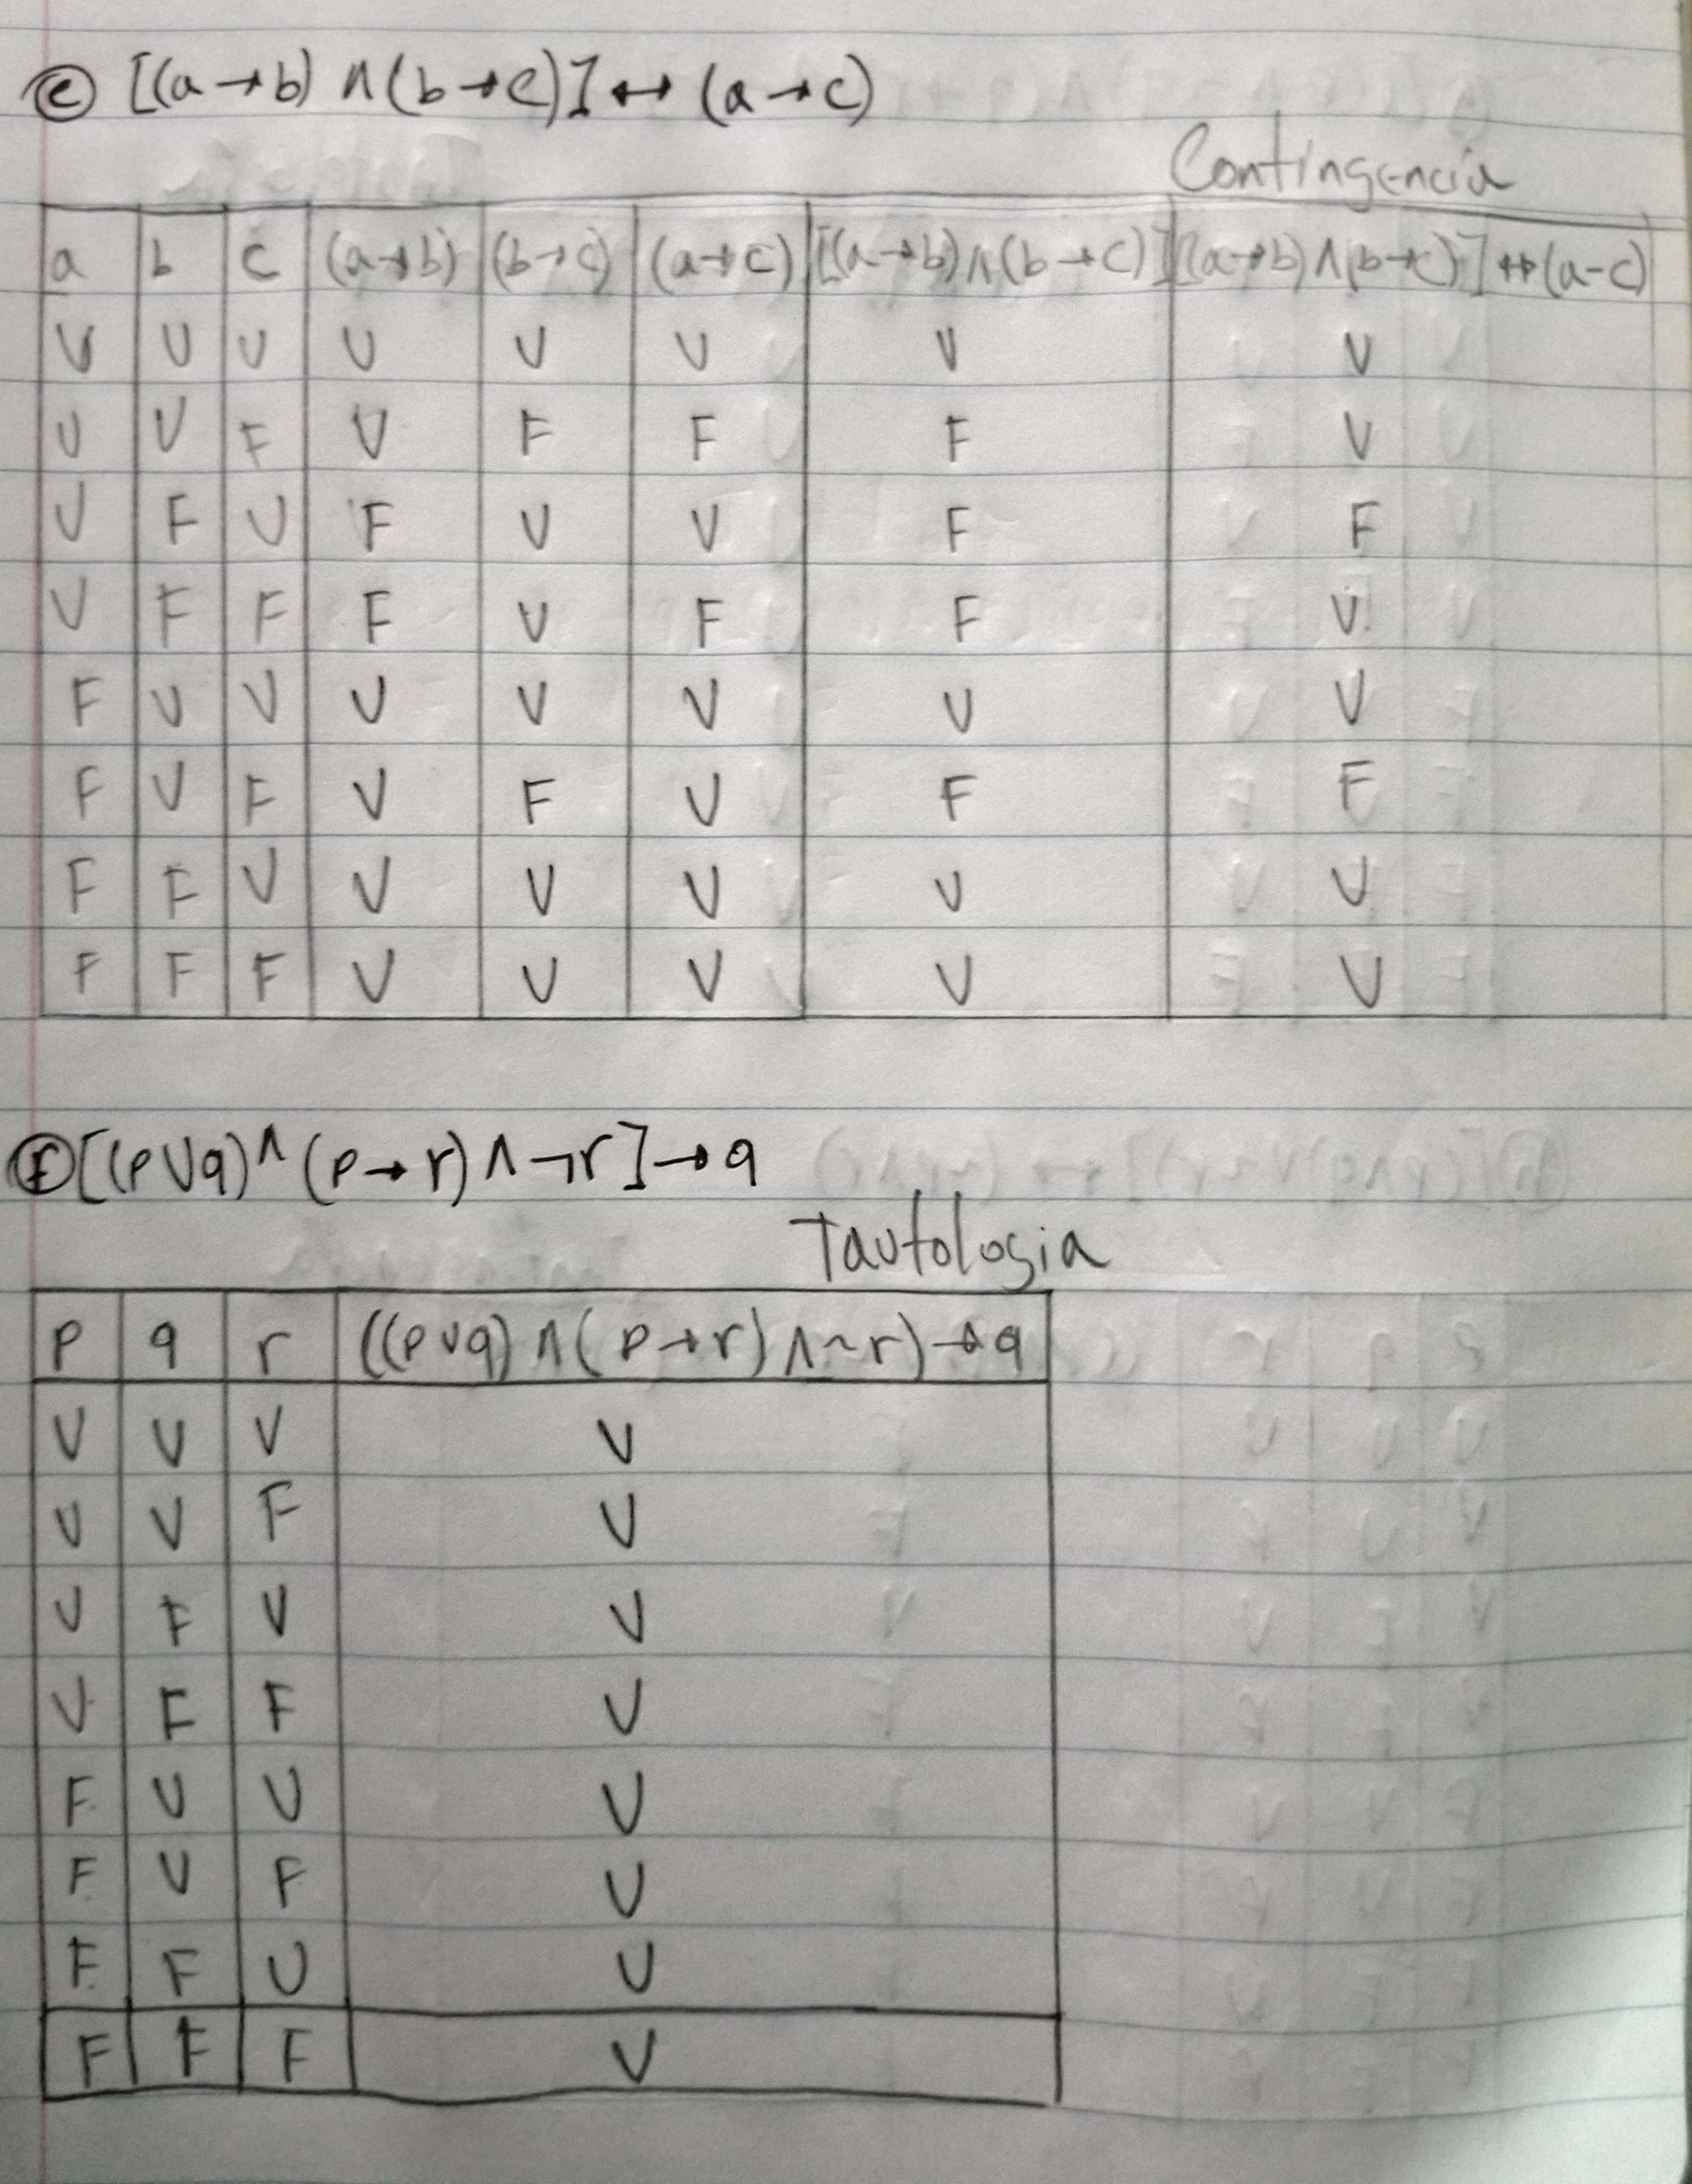 ⓔ [(a→b) ∧ (b→c)] ↔ (a→c)
Contingencia
a b c (a→b) (b→c) (a→c) [(a→b)∧(b→c)] [(a→b)∧(b→c)]↔(a-c)
V V V V V V V V
V V F V F F F V
V F V F V V F F
V F F F V F F V
F V V V V V V V
F V F V F V F F
F F V V V V V V
F F F V V V V V
ⓕ [(p∨q)∧(p→r)∧¬r]→q
Tautologia
p q r ((p∨q)∧(p→r)∧~r)→q
V V V V
V V F V
V F V V
V F F V
F V V V
F V F V
F F V V
F F F V